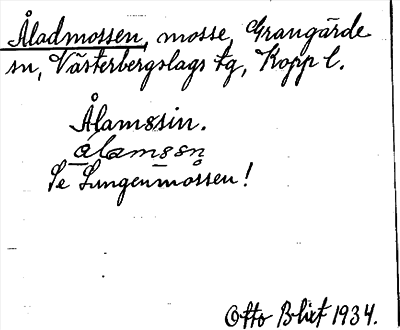 Åladmossen, mosse, Grangärde
sn, Västerbergslags tg, Kopp l.
Ålamssin.
ålamssn̥
Se Lungenmossen!
Otto Blixt 1934.